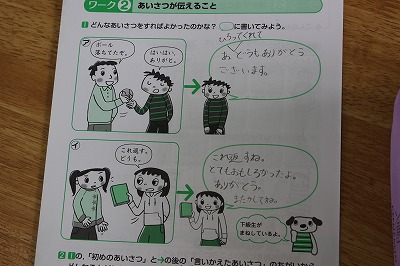 ワーク2 あいさつが伝えること
1 どんなあいさつをすればよかったのかな? に書いてみよう。
ア
ボール
落ちてたぞ。
はいはい、
ありがと。
ひろってくれて
どうもありがとう
ございます。
イ
これ返す。
どうも。
これ返すね。
とてもおもしろかったよ。
ありがとう。
またかしてね。
下級生が
まねしているよ。
2 1の、「初めのあいさつ」と→の後の「言いかえたあいさつ」の